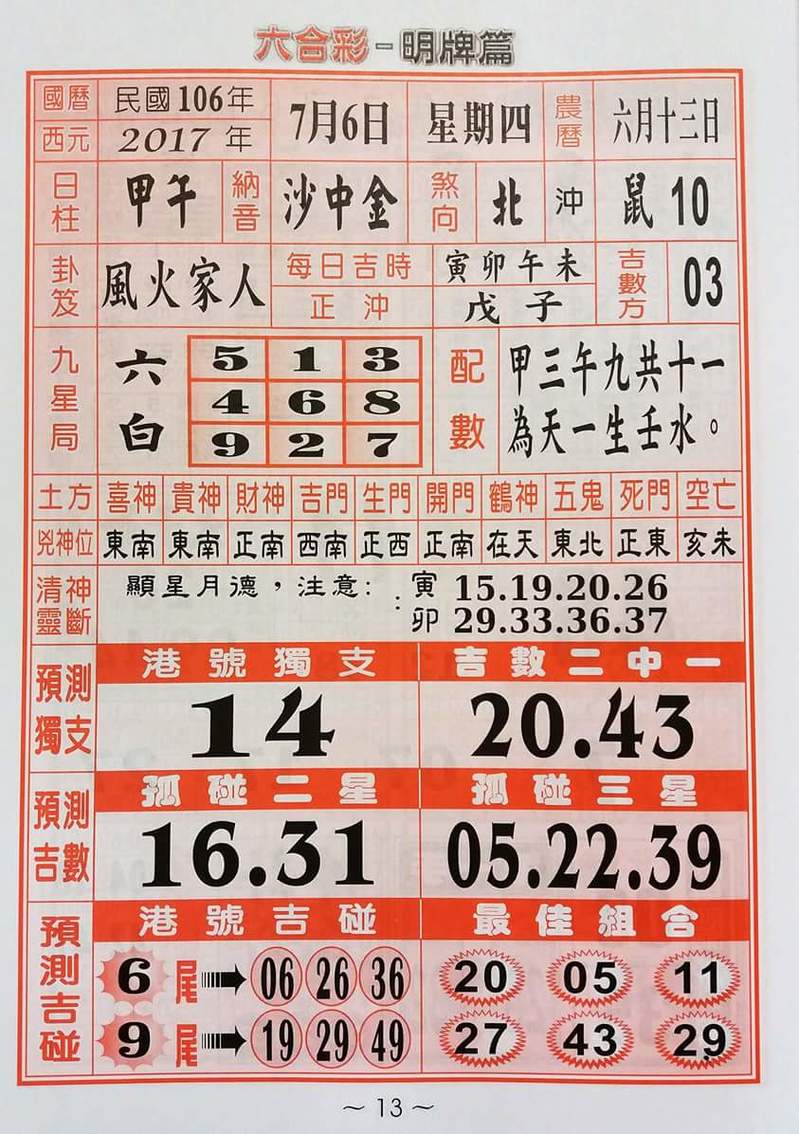 六合彩-明牌篇
國曆 民國106年 7月6日 星期四 農曆 六月十三日
西元 2017年
日柱 甲午 納音 沙中金 煞向 北 沖 鼠 10
卦笈 風火家人 每日吉時 寅卯午未 吉數方 03
正沖 戊子
九星局 六白 5 1 3 配數 甲三午九共十一
4 6 8 為天一生壬水。
9 2 7
土方 喜神 貴神 財神 吉門 生門 開門 鶴神 五鬼 死門 空亡
兇神位 東南 東南 正南 西南 正西 正南 在天 東北 正東 亥未
清神靈斷 顯星月德，注意：寅 15.19.20.26
：卯 29.33.36.37
預測獨支 港號獨支 吉數二中一
14 20.43
預測吉數 孤碰二星 孤碰三星
16.31 05.22.39
預測吉碰 港號吉碰 最佳組合
6尾 06 26 36 20 05 11
9尾 19 29 49 27 43 29
~ 13 ~